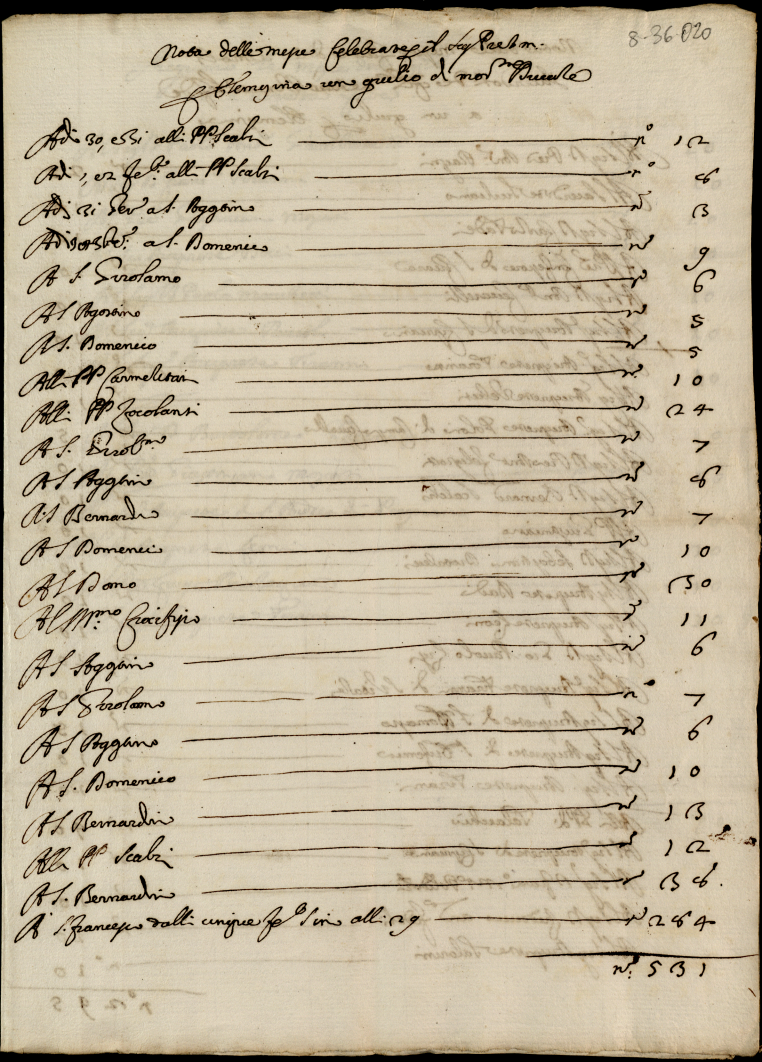 8-36-020
Nota delle messe celebrate per il Sig. Pret.
Elemosina un giulio di mon.
Adi 30, e 31 alli PP. Scalzi n° 12
Adi 1, e 2 feb.° alli PP Scalzi n° 8
Adi 31 Gen.° a S. Aggostino n° 3
a S. Domenico n° 9
A S. Girolamo n° 6
A S Agostino n° 5
A S. Domenico n° 5
Alli PP Carmelitani n° 10
Alli PP Zocolanti n° 24
A S. Girol.mo n° 7
A S Aggostino n° 8
A S Bernardino n° 7
A S Domenico n° 10
A S Bono n° 30
Al SS.mo Crocifisso n° 11
A S Aggostino n° 6
A S Girolamo n° 7
A S Aggostino n° 6
A S. Domenico n° 10
A S Bernardino n° 13
Alli PP Scalzi n° 12
A S. Bernardino n° 38
A S. Francesco dalli cinque feb.° sin alli 29 n° 284
n° 531